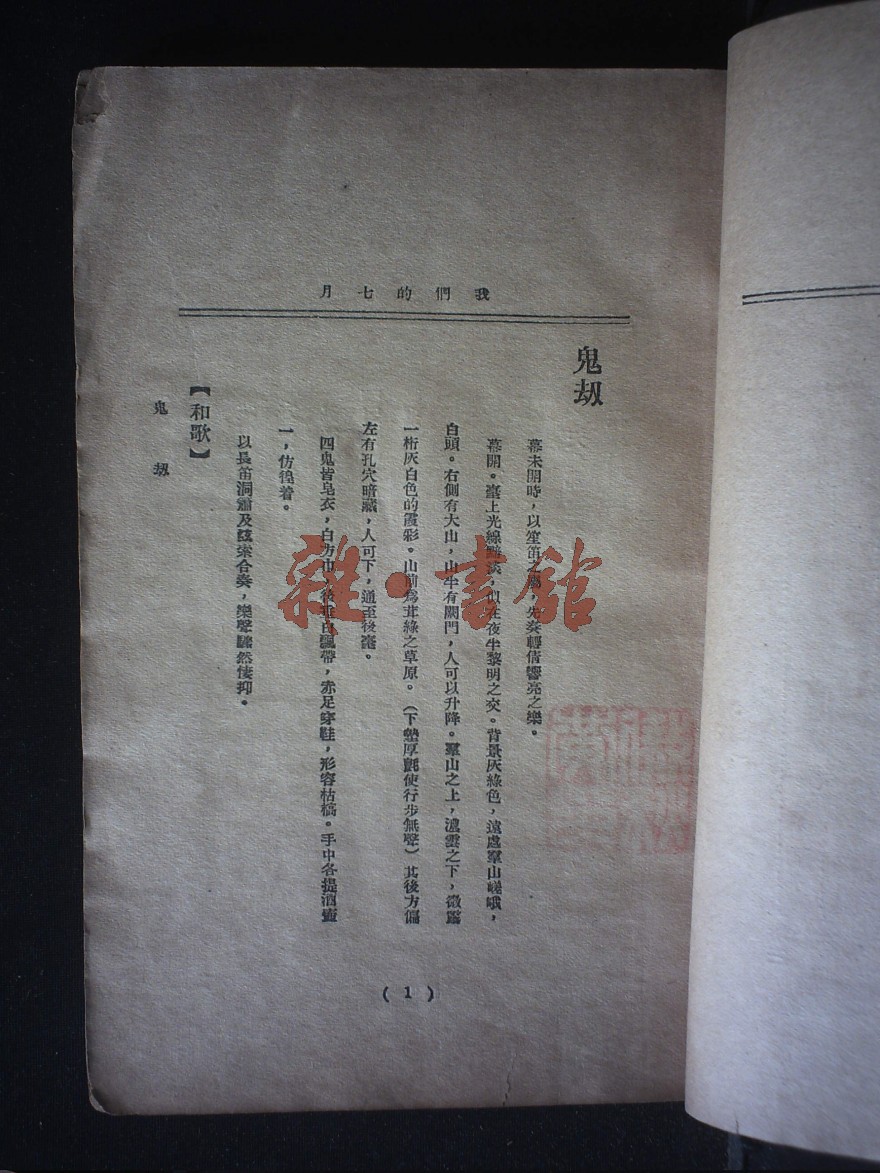 我們的七月
鬼劫
幕未開時，以笙笛之屬，先奏輕倩響亮之樂。
幕開。臺上光線黯淡，似在夜半黎明之交。背景灰綠色，遠處羣山嵯峨，
白頭。右側有大山，山半有闕門，人可以升降。羣山之上，濃雲之下，微露
一桁灰白色的霞彩。山前爲茸綠之草原。（下墊厚氈使行步無聲）其後方偏
左有孔穴暗藏，人可下，通至後臺。
四鬼皆皂衣，白方巾，後垂白飄帶，赤足穿鞋，形容枯槁。手中各提酒壺
一，仿徨着。
以長笛洞簫及弦索合奏，樂聲闃然悽抑。
【和歌】
鬼劫
(1)
雜·書館